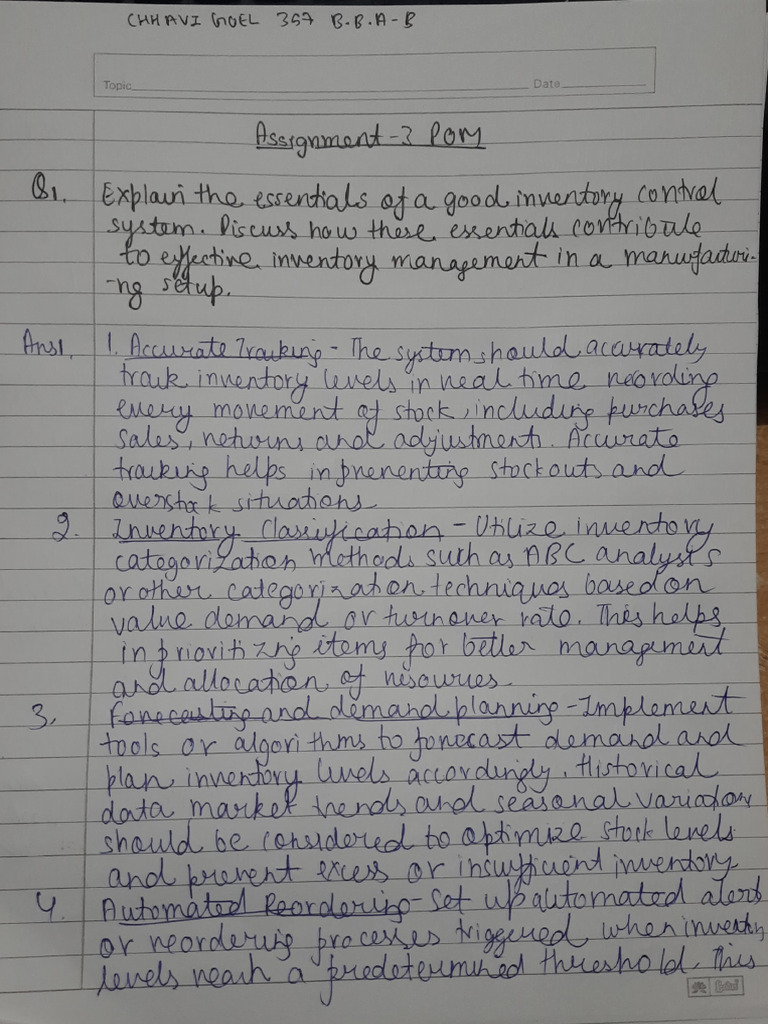 CHHAVI GOEL 357 B.B.A-B
Topic Date
Assignment-3 POM
Q1. Explain the essentials of a good inventory control
system. Discuss how these essentials contribute
to effective inventory management in a manufacturi-
-ng setup.
Ans1. 1. Accurate Tracking - The system should accurately
track inventory levels in real time recording
every movement of stock, including purchases
sales, returns and adjustments. Accurate
tracking helps in preventing stockouts and
overstock situations
2. Inventory Classification - Utilize inventory
categorization methods such as ABC analysis
or other categorization techniques based on
value demand or turnover rate. This helps
in prioritizing items for better management
and allocation of resources.
3. Forecasting and demand planning - Implement
tools or algorithms to forecast demand and
plan inventory levels accordingly. Historical
data market trends and seasonal variations
should be considered to optimize stock levels
and prevent excess or insufficient inventory
4. Automated Reordering - Set up automated alerts
or reordering processes triggered when inventory
levels reach a predetermined threshold. This